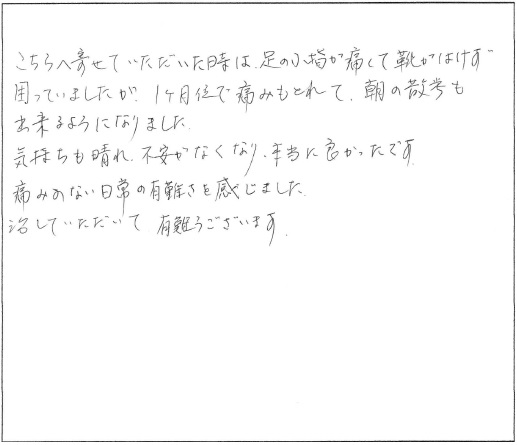 こちらへ寄せていただいた時は、足の小指が痛くて靴がはけず
困っていましたが、1ヶ月位で痛みもとれて、朝の散歩も
出来るようになりました。
気持ちも晴れ、不安がなくなり、本当に良かったです。
痛みのない日常の有難さを感じました。
治していただいて 有難うございます。